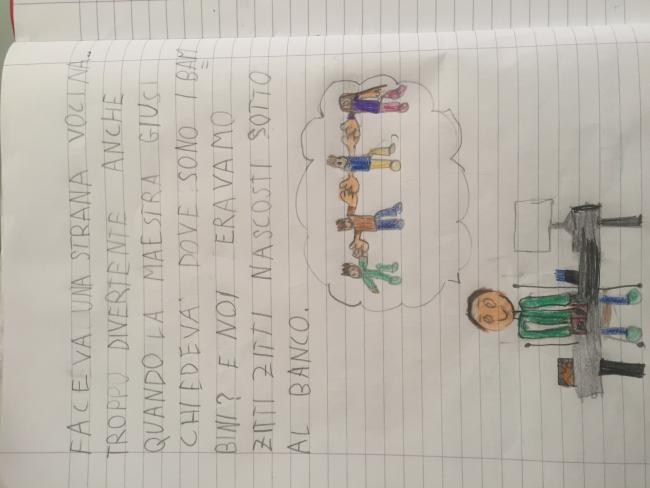 FACEVA UNA STRANA VOCINA..
TROPPO DIVERTENTE ANCHE
QUANDO LA MAESTRA GIUSI
CHIEDEVA' DOVE SONO I BAM
BINI? E NOI ERAVAMO
ZITTI ZITTI NASCOSTI SOTTO
AL BANCO.